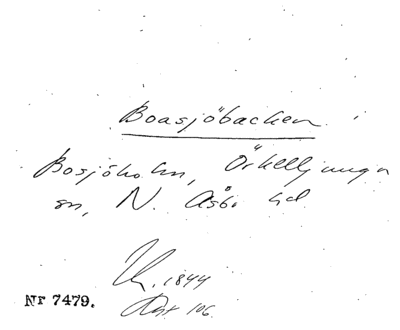 Boasjöbacken
Bosjöholm, Örkelljunga
sn, N. Åsbo hd
1844
106
Nr 7479.